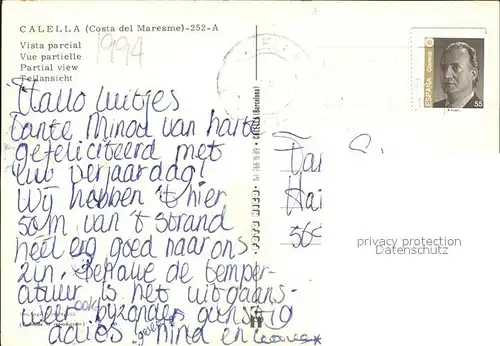 CALELLA (Costa del Maresme)-252-A
Vista parcial
Vue partielle
Partial view
Teilansicht
1994
ESPAÑA
Correos
55
Hallo luitjes
tante Minod van harte
gefeliciteerd met
uw verjaardag!
Wij hebben 't hier
50m van 't strand
heel erg goed naar ons
zin. Behalve de temper-
atuur is het uitgaans-
weer ook bijzonder gunstig
adios
CALELLA (Barcelona)
Hai
privacy protection
Datenschutz